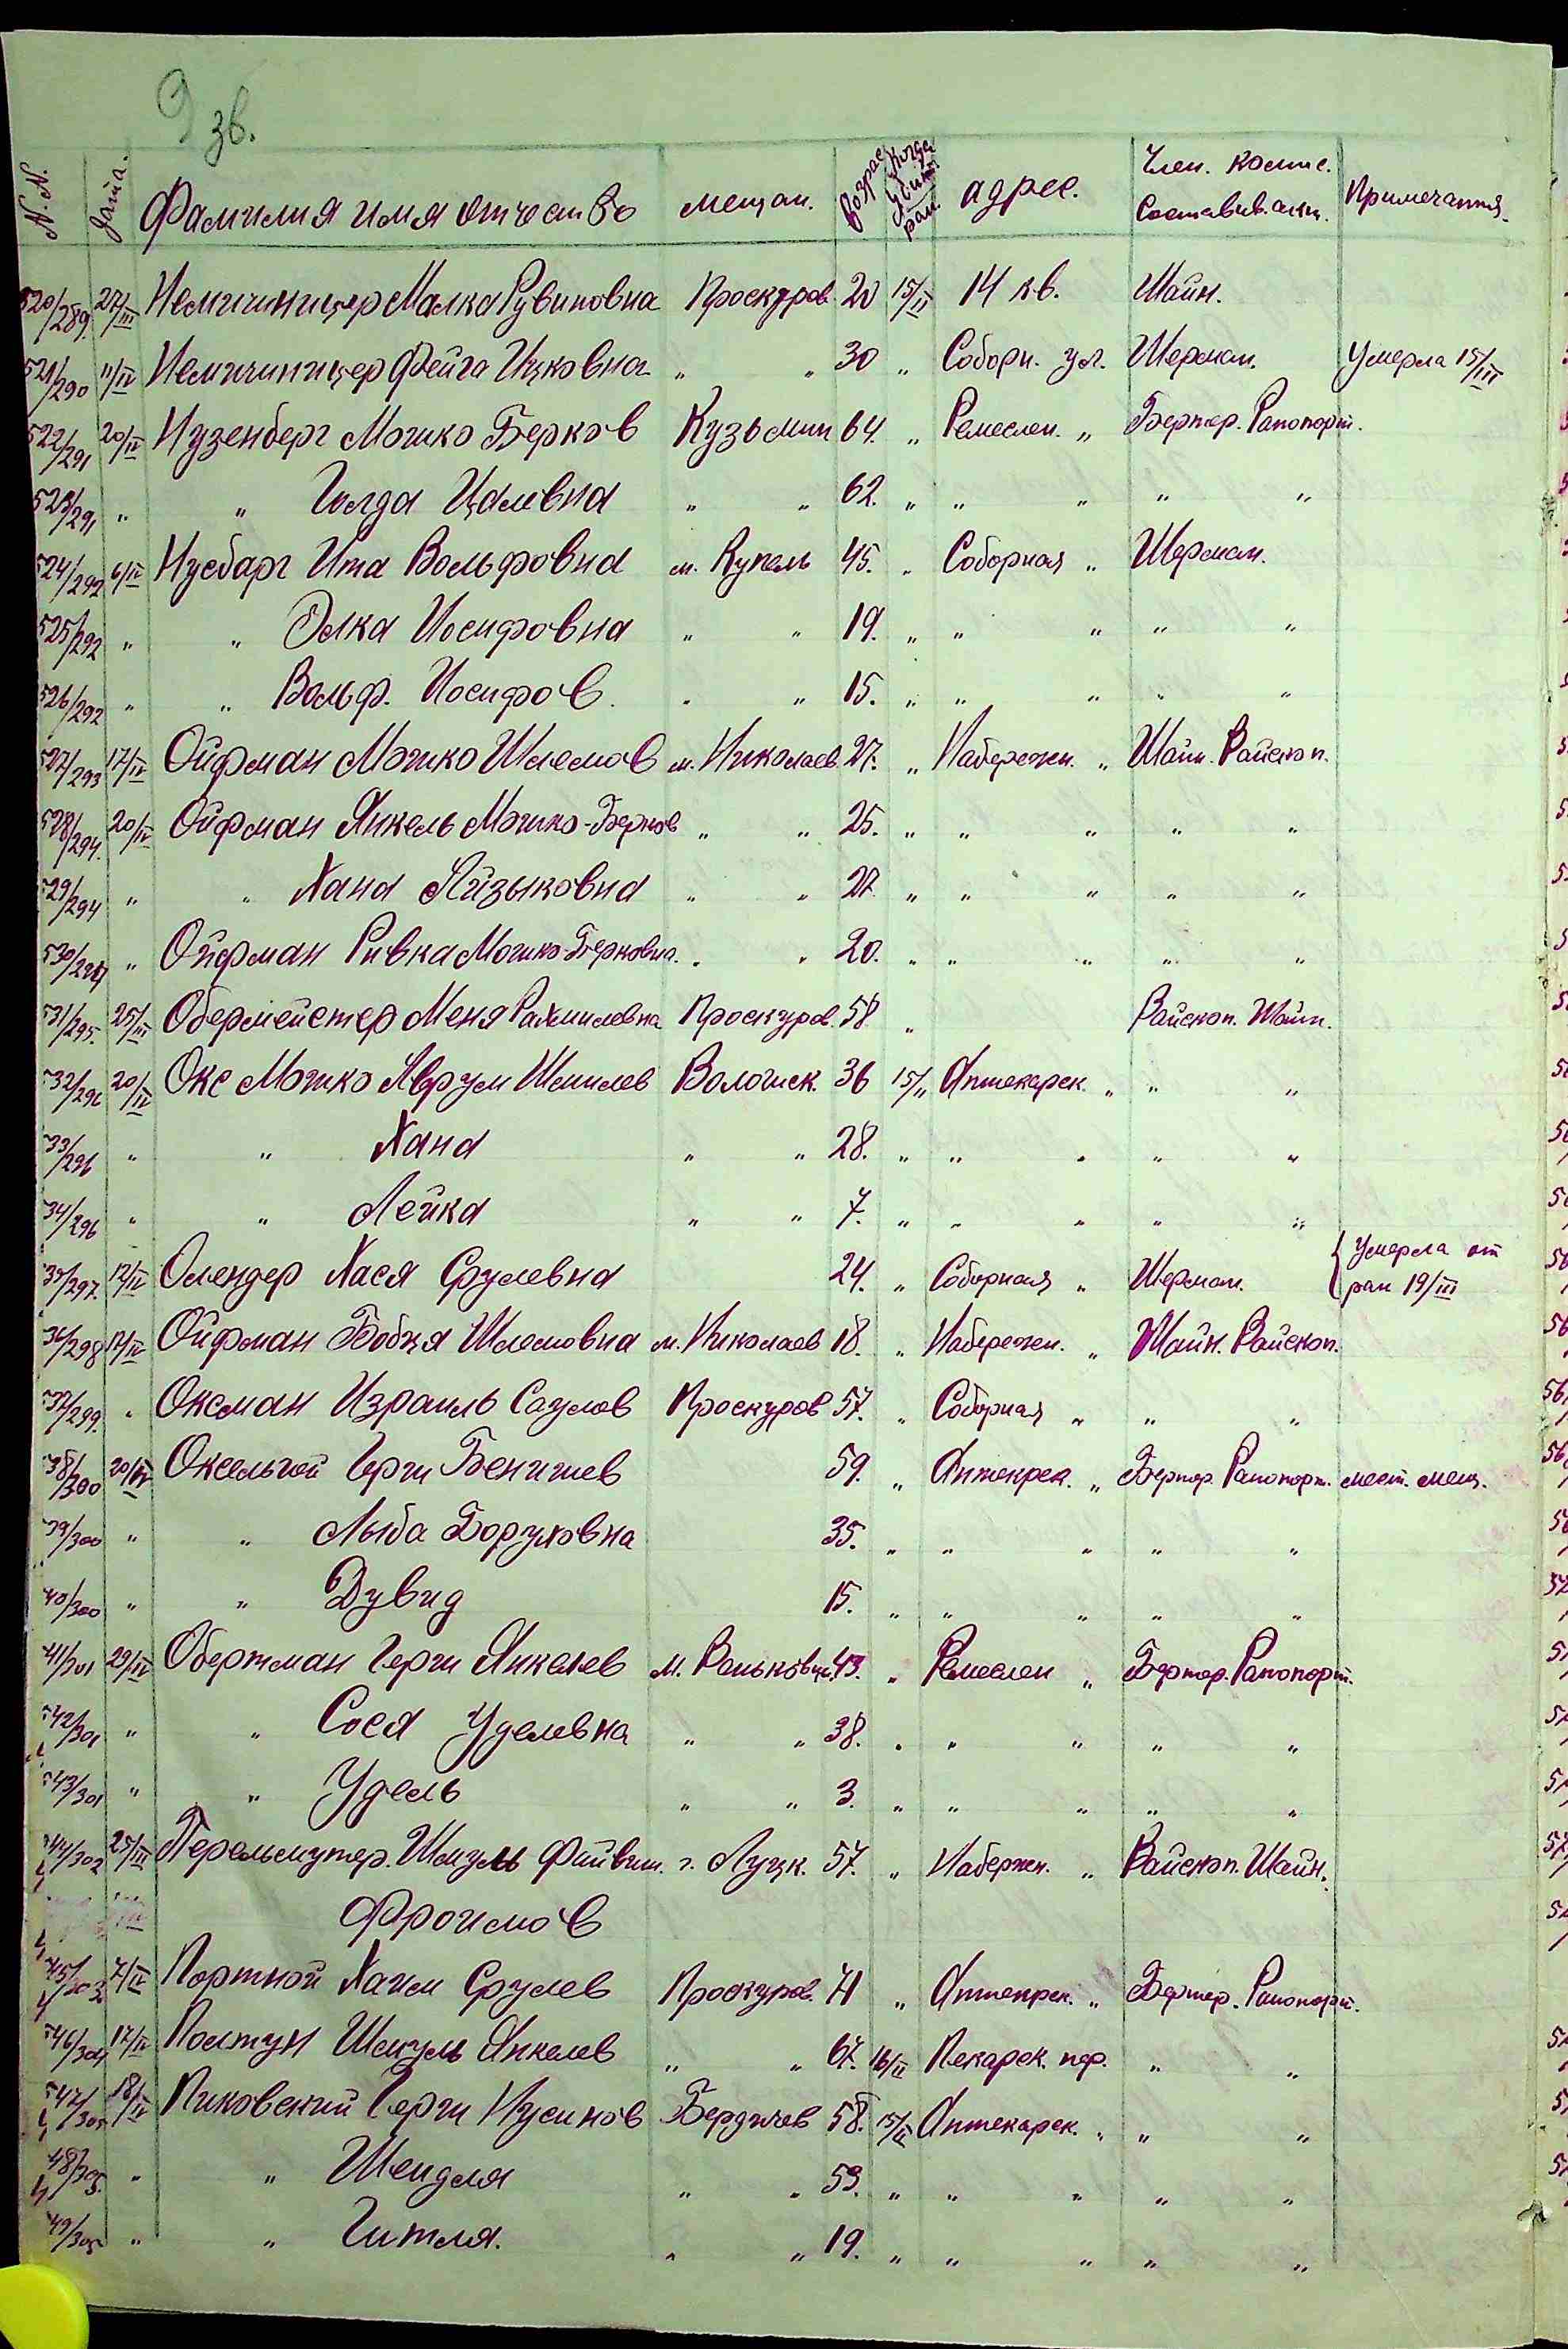 9 зв.
N.N. Дата. Фамилия имя отчество мещан. Возрас Когда убит. ран. адрес. Член. комис. Составив. акт. Примечания.
520/289. 27/III Немичиницер Малка Рувиновна Проскуров. 20 15/II 14 кв. Шайн.
521/290 11/IV Немичиницер Фейга Ицковна " " 30 " Соборн. ул. Шерман. Умерла 15/III
522/291 20/IV Нузенберг Мошко Берков Кузьмин 64. " Ремеслен. " Бертер. Рапопорт.
523/291 " " Голда Цалевна " " 62. " " " " "
524/292 6/IV Нусбарг Ита Вольфовна м. Купель 45. " Соборная " Шерман.
525/292 " " Элка Иосифовна " " 19. " " " " "
526/292 " " Вольф. Иосифов. " " 15. " " " " "
527/293 17/IV Ойфман Мошко Шлемов м. Николаев. 27. " Набережн. " Шайн. Райскоп.
528/294. 20/IV Ойфман Янкель Мошко-Берков " " 25. " " " " "
529/294 " " Хана Айзыковна " " 27 " " " " "
530/294 " Ойфман Ривка Мошко-Берковна. " " 20. " " " " "
531/295. 25/III Обермейстер Меня Рахмилевна Проскуров. 58 " Райскоп. Шайн.
532/296 20/IV Окс Мошко Аврум Шмилев Волочиск. 36 15/II Аптекарск. " " "
33/296 " " Хана " " 28. " " " " "
34/296 " " Лейка " " 7. " " " " "
35/297. 12/IV Олендер Хася Срулевна 24. " Соборная " Шерман. { Умерла от
ран 19/III
36/298 17/IV Ойфман Бобця Шлемовна м. Николаев 18. " Набережн. " Шайн. Райскоп.
37/299. " Оксман Израиль Саулов Проскуров 57. " Соборная " " "
38/300 20/IV Оксельгой Герш Бенишев 59. " Аптекрск. " Бертер. Рапопорт. мест. мещ.
39/300 " " Лыба Боруховна 35. " " " " "
40/300 " " Дувид 15. " " " " "
41/301 29/IV Обертман Герш Янкелев м. Ваньковцы 43. " Ремеслен " Бертер. Рапопорт.
542/301 " " Сося Уделевна " " 38. " " " " "
543/301 " " Удель " " 3. " " " " "
544/302 25/III Перельмутер. Шмуль Файвиш. г. Луцк. 57. " Набержн. " Райскоп. Шайн.
Фроимов
545/303 7/IV Портной Хаим Срулев Проскуров. 41 " Аптекрск. " Бертер. Рапопорт.
546/304 17/IV Полтун Шмуль Янкелев " " 67. 16/II Пекарск. пер. " "
547/305 18/IV Пиковский Герш Нусинов Бердичев 58. 15/II Аптекарск. " " "
48/305. " " Шендля " " 53. " " " " "
49/305 " " Гитля. " " 19. " " " " "